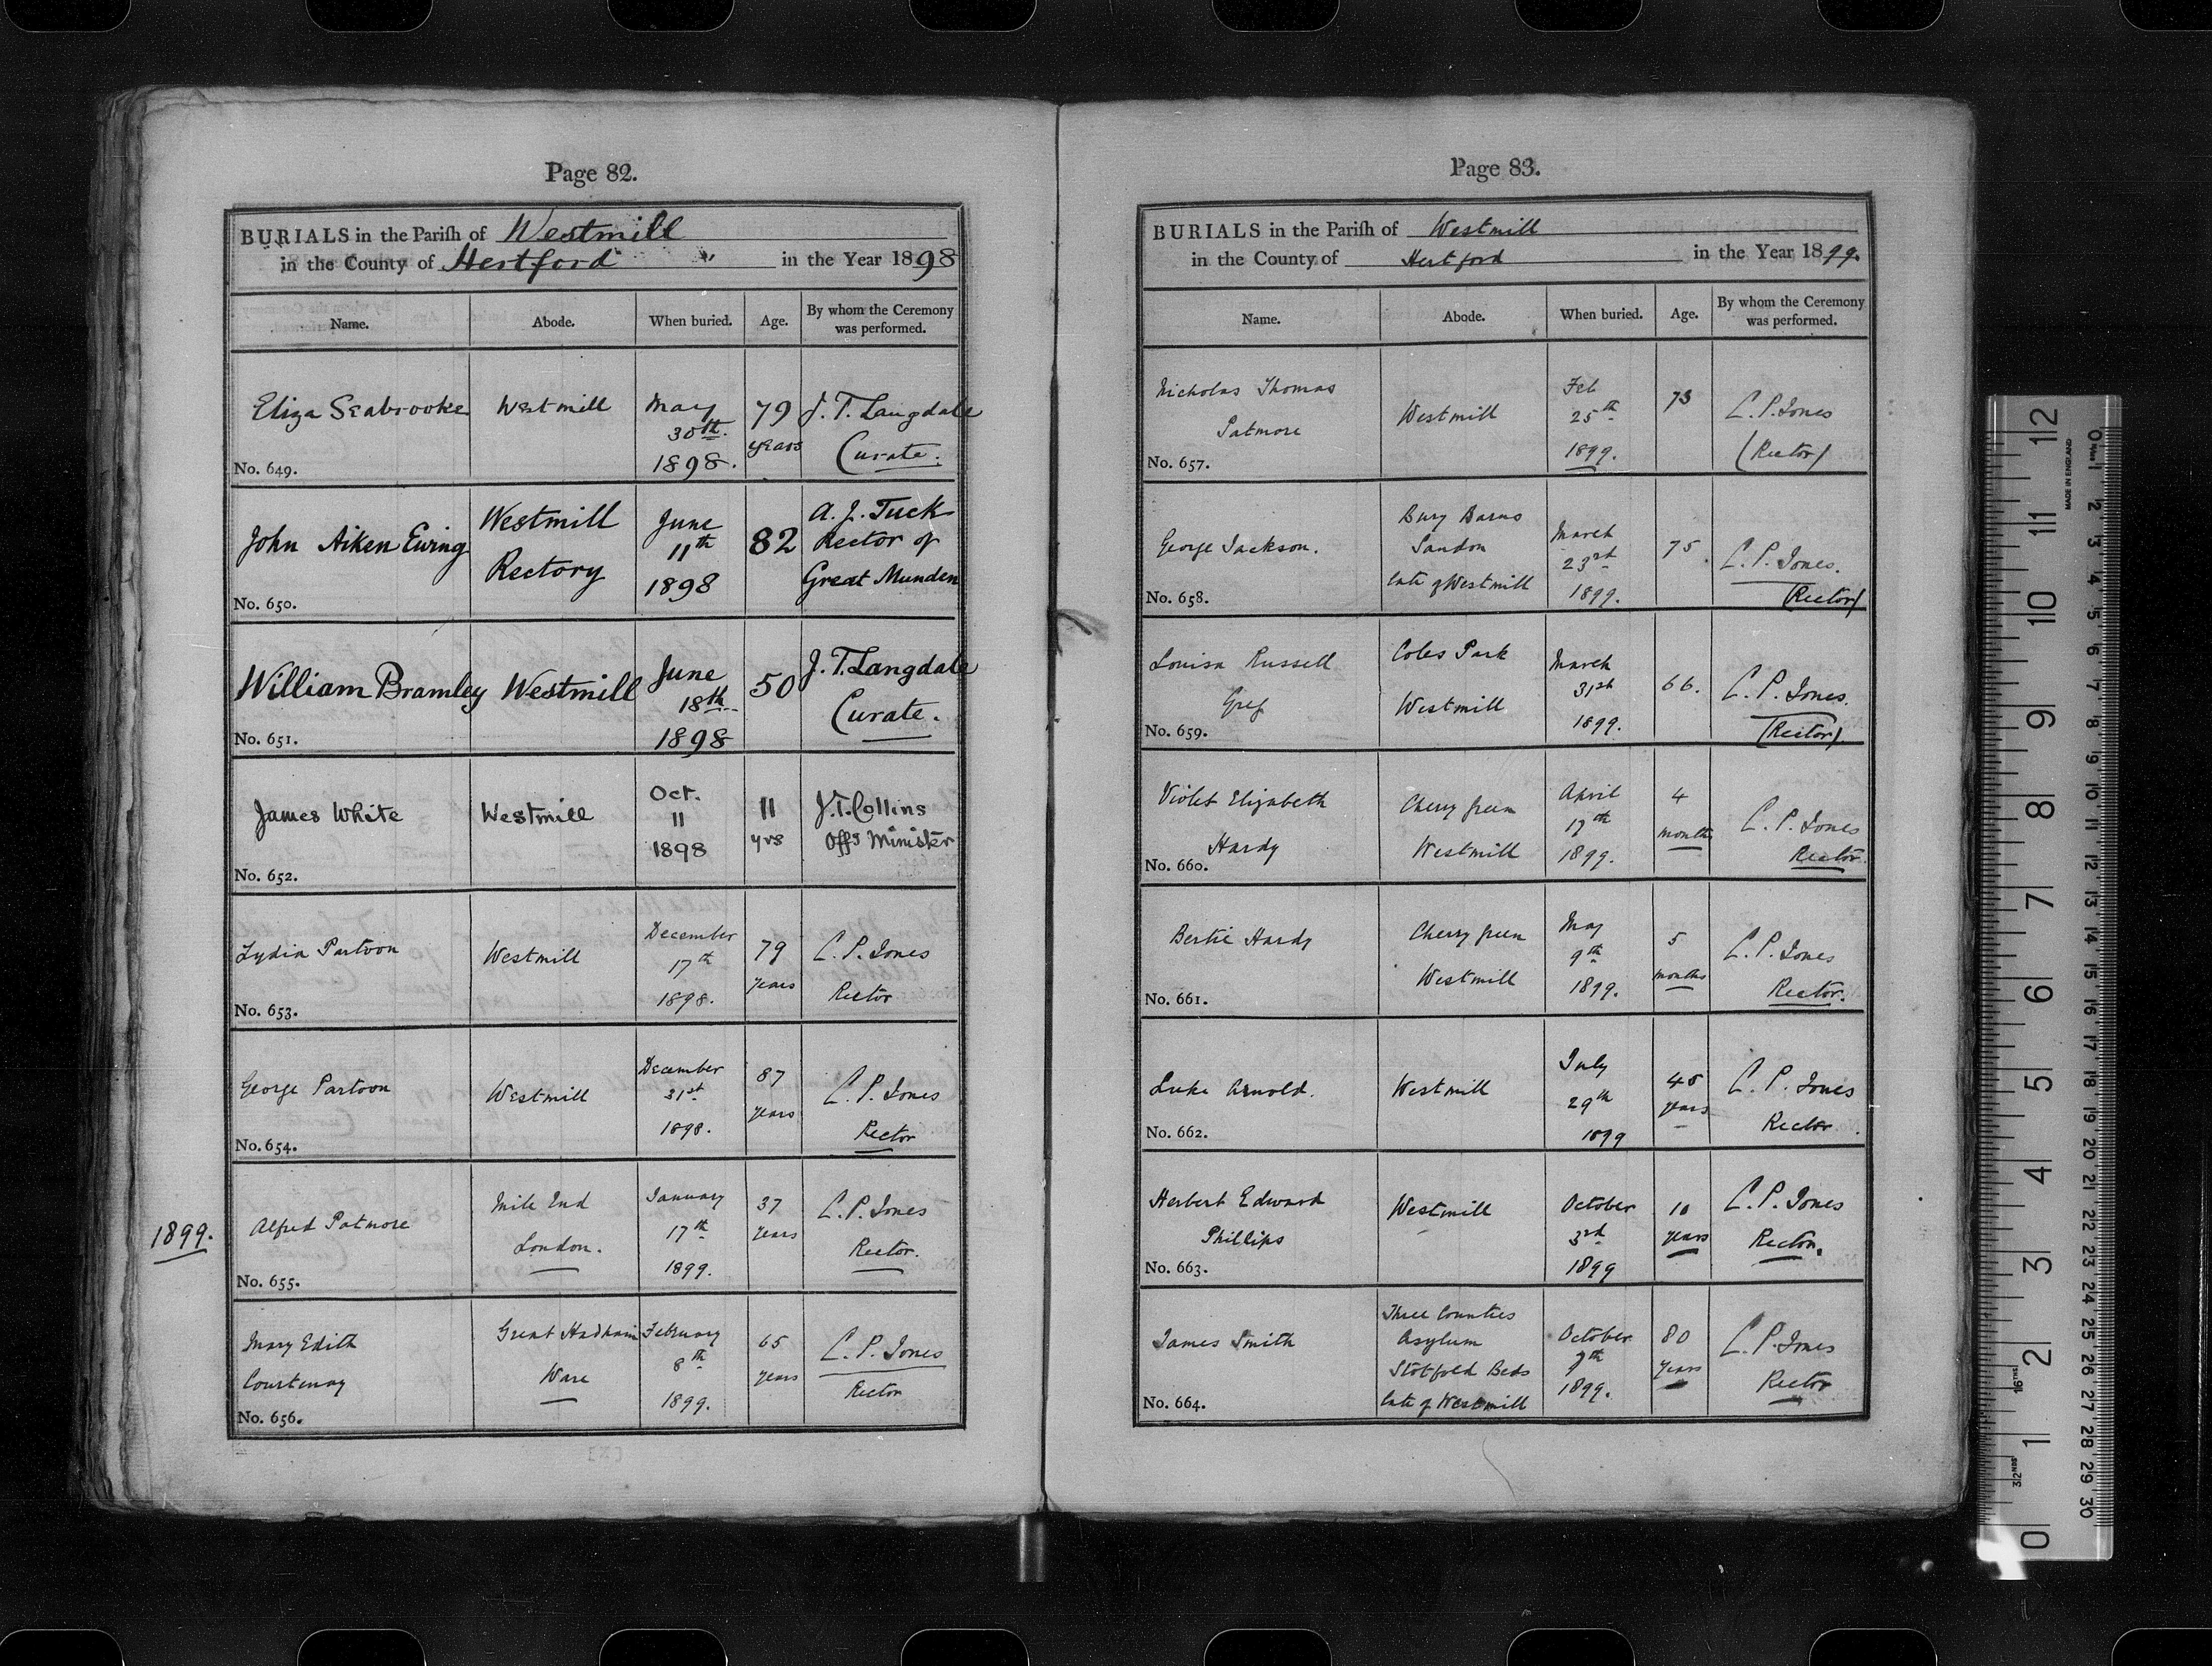 Page 82.
BURIALS in the Pariſh of Westmill
in the County of Hertford " in the Year 1898
Name. Abode. When buried. Age. By whom the Ceremony was performed.
Eliza Seabrooke Westmill May 30th. 1898. 79 years J. T. Langdale Curate.
No. 649.
John Aiken Ewing Westmill Rectory June 11th 1898 82 A. J. Tuck Rector of Great Munden
No. 650.
William Bramley Westmill June 18th 1898 50 J. T. Langdale Curate.
No. 651.
James White Westmill Oct. 11 1898 11 yrs J. T. Collins Offg Minister
No. 652.
Lydia Partoon Westmill December 17th 1898. 79 years C. P. Jones Rector
No. 653.
George Partoon Westmill December 31st 1898. 87 years C. P. Jones Rector
No. 654.
1899.
Alfred Patmore Mile End London. January 17th 1899. 37 years C. P. Jones Rector.
No. 655.
Mary Edith Courtenay Great Hadham Ware February 8th 1899. 65 years C. P. Jones Rector
No. 656.
Page 83.
BURIALS in the Pariſh of Westmill
in the County of Hertford in the Year 1899.
Name. Abode. When buried. Age. By whom the Ceremony was performed.
Nicholas Thomas Patmore Westmill Feb 25th 1899. 73 C. P. Jones (Rector)
No. 657.
George Jackson. Bury Barns Sandon late of Westmill March 23rd 1899. 75. C. P. Jones. (Rector)
No. 658.
Louisa Russell Greg Coles Park Westmill March 31st 1899. 66. C. P. Jones. (Rector).
No. 659.
Violet Elizabeth Hardy Cherry Green Westmill April 17th 1899. 4 months C. P. Jones Rector.
No. 660.
Bertie Hardy Cherry Green Westmill May 9th 1899. 5 months C. P. Jones Rector.
No. 661.
Luke Arnold. Westmill July 29th 1899 45 years C. P. Jones Rector.
No. 662.
Herbert Edward Phillips Westmill October 3rd 1899 10 years C. P. Jones Rector.
No. 663.
James Smith Three Counties Asylum Stotfold Beds late of Westmill October 7th 1899. 80 years C. P. Jones Rector
No. 664.
MADE IN ENGLAND
12 11 10 9 8 7 6 5 4 3 2 1 0
0 1 2 3 4 5 6 7 8 9 10 11 12 13 14 15 16 17 18 19 20 21 22 23 24 25 26 27 28 29 30
16THS
32NDS